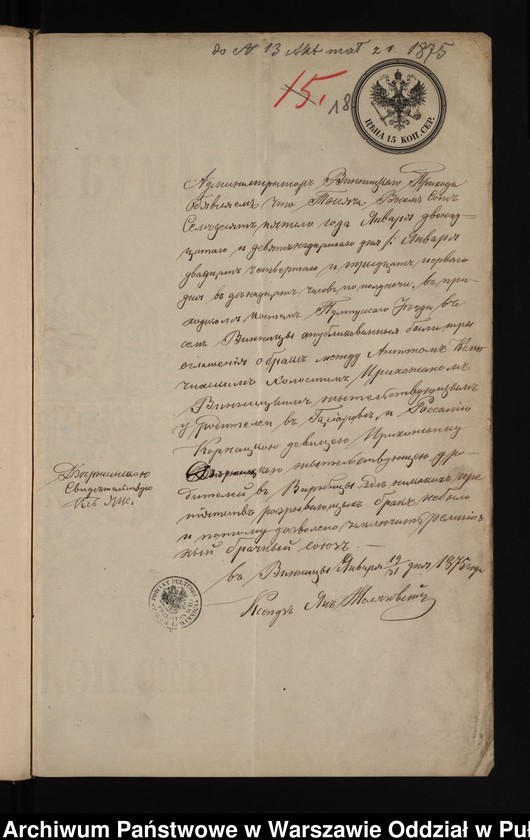 до N 13 Akt mał z r. 1875
15. 18
ЦѢНА 15 КОП. СЕР.
Администраторъ Винницкаго Прихода
Объявляемъ что Тысяча Восемь Сотъ
Семдесятъ пятаго года Января двенад-
цатаго и девятнадцатаго дня /: Января
двадцать четвертаго и тридцать перваго
дня въ двенадцать часовъ по полудни, въ при-
ходскомъ костелѣ Пултускаго Уѣзда въ
селѣ Винницы опубликованныя были три
оглашенія о бракѣ между Антономъ
Холостымъ Прихожаномъ
Винницкимъ жительствующимъ
у родителей въ и Розаліею
девицею Прихожанку
жительствующею у ро-
дителей въ никакихъ пре-
пятствъ разрывающихъ бракъ не было
и потому дозволено заключить религіоз-
ный брачный союзъ. —
въ Винницы Января 19/31 дня 1875 года
Ксендзъ Янъ
Дзержинскою
Свидѣтельствую
Кс. Янъ.
Archiwum Państwowe w Warszawie Oddział w Puł